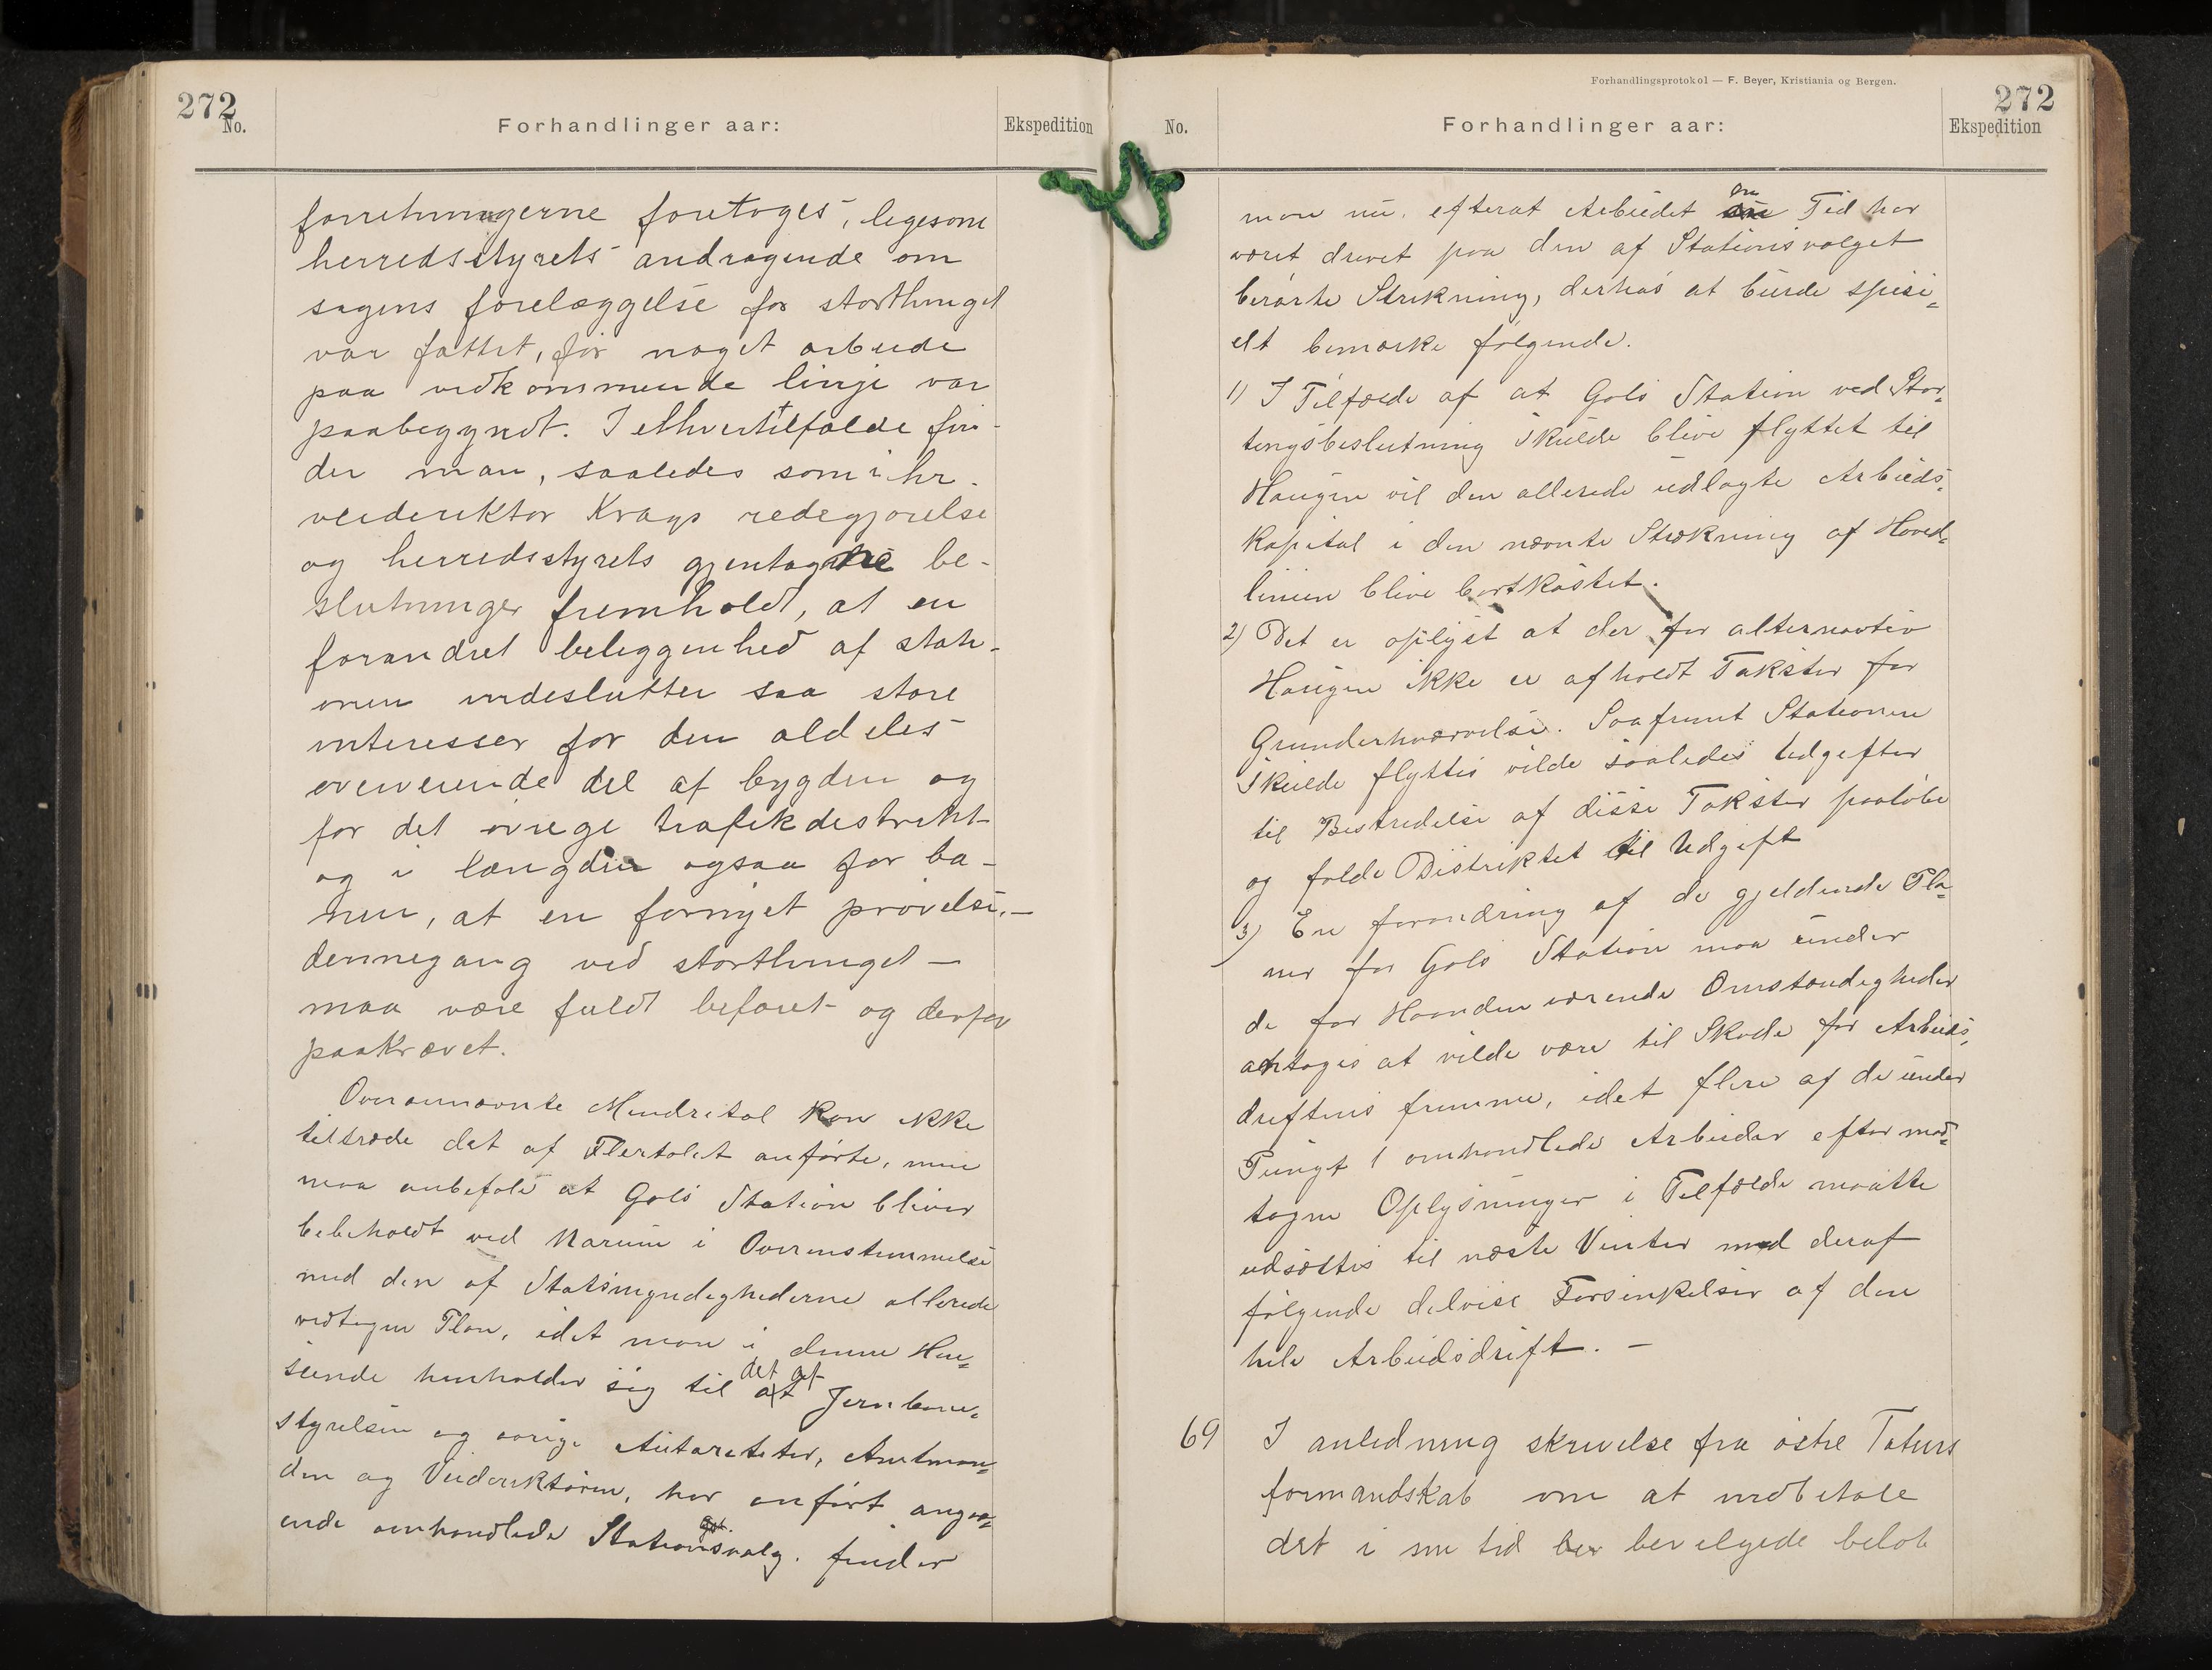 272
No.
Forhandlinger aar:
Ekspedition
forretningerne foretoges, ligesom
herredsstyrets andragende om
sagens forelæggelse for storthinget
var fattet, før noget arbeide
paa vedkommende linje var
paabegyndt. I ethvert tilfælde fin-
der man, saaledes som i hr.
veidirektør Krags redegjørelse
og herredsstyrets gjentagne be-
slutninger fremholdt, at en
forandret beliggenhed af stati-
onen indeslutter saa store
interesser for den aldeles
overveiende del af bygden og
for det øvrige trafikdistrikt
og i længden ogsaa for ba-
nen, at en fornyet prøvelse, —
dennegang ved storthinget —
maa være fuldt beføiet og derfor
paakrævet.
Ovenannævnte Mindretal kan ikke
tiltræde det af Flertalet anførte, men
maa anbefale at Gols Station bliver
bibeholdt ved Narum i Overensstemmelse
med den af Statsmyndighederne allerede
vedtagne Plan, idet man i denne Hen-
seende henholder sig til det af Jernbane-
styrelsen og øvrige Autoriteter, Amtman-
den og Veidirektøren, har anført angaa-
ende omhandlede Stationsvalg. finder
Forhandlingsprotokol — F. Beyer, Kristiania og Bergen.
272
No.
Forhandlinger aar:
Ekspedition
man nu, efterat Arbeidet en Tid har
været drevet paa den af Stationsvalget
berørte Strekning, derhos at burde spesi-
elt bemærke følgende.
1) I Tilfælde af at Gols Station ved Stor-
tingsbeslutning skulde blive flyttet til
Haugen vil den allerede udlagte Arbeids-
kapital i den nævnte Strækning af Hoved-
linien blive bortkastet.
2) Det er oplyst at der for alternativ
Haugen ikke er afholdt Takster for
Grunderhvervelse. Saafremt Stationen
skulde flyttes vilde saaledes Udgifter
til Bestridelse af disse Takster paaløbe
og falde Distriktet til Udgift
3) En forandring af de gjeldende Pla-
ner for Gols Station maa under
de for Haanden værende Omstændigheder
antages at vilde være til Skade for Arbeids-
driftens fremme, idet flere af de under
Pungt 1 omhandlede Arbeider efter mod-
tagne Oplysninger i Tilfælde maatte
udsættes til næste Vinter med deraf
følgende delvise Forsinkelser af den
hele Arbeidsdrift. —
69
I anledning skrivelse fra østre Totens
formandskab om at indbetale
det i sin tid bevilgede beløb